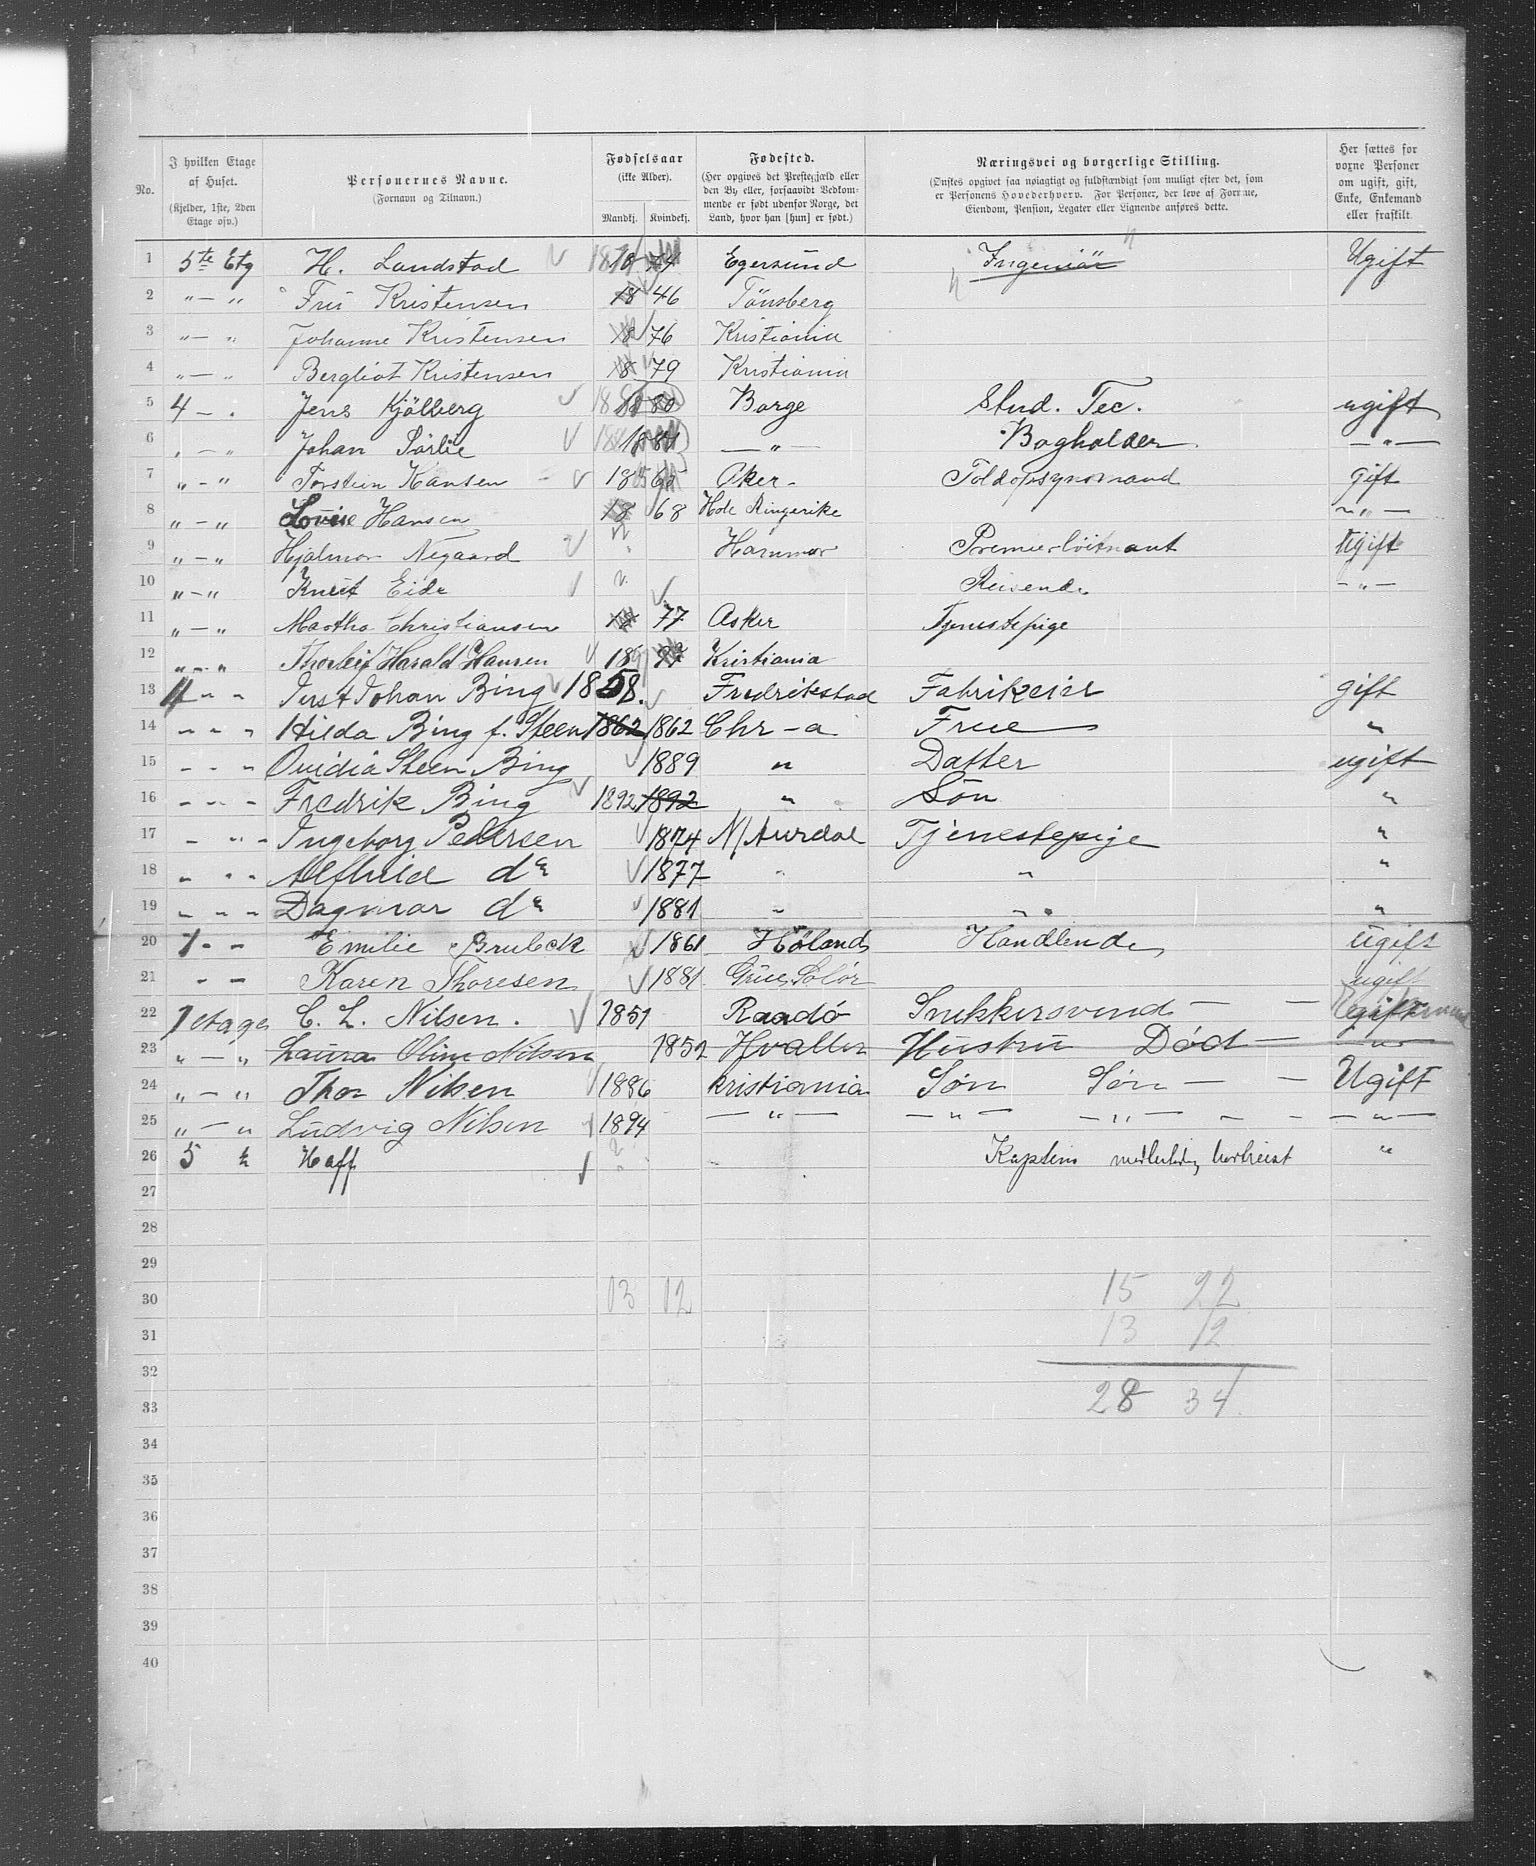 No.
I hvilken Etage af Huset. (Kjelder, 1ste, 2den Etage osv.)
Personernes Navne. (Fornavn og Tilnavn.)
Fødselsaar (ikke Alder). Mandkj. Kvindekj.
Fødested. (Her opgives det Prestegjæld eller den By eller, forsaavidt Vedkommende er født udenfor Norge, det Land, hvor han [hun] er født.)
Næringsvei og borgerlige Stilling. (Ønskes opgivet saa nøiagtigt og fuldstændigt som muligt efter det, som er Personens Hovederhverv. For Personer, der leve af Formue, Eiendom, Pension, Legater eller Lignende anføres dette.
Her sættes for voxne Personer om ugift, gift, Enke, Enkemand eller fraskilt.
1 5te Etg H. Landstad 18 74 Egersund Ingeniör Ugift
2 " — " Fru Kristensen 18 46 Tönsberg
3 " — " Johanne Kristensen 18 76 Kristiania
4 " — " Bergliot Kristensen 18 79 Kristiania
5 4 — " Jens Kjölberg 18 80 Borge Stud. Tec. ugift
6 " — " Johan Sörlie 1881 — " — Bogholder — " —
7 " — " Torstein Hansen 18 65 Aker Toldopsynsmand gift
8 " — " Lovise Hansen 18 68 Hole Ringerike — " —
9 " — " Hjalmar Negaard Hammar Premierlöitnant Ugift
10 " — " Knut Eide Reisende — " —
11 " — " Martha Christiansen 18 77 Asker Tjenestepige
12 " — " Thorleif Harald Hansen 18 97 Kristiania
13 4 " " Just Johan Bing 1858. Fredrikstad Fabrikeier gift
14 " " " Hilda Bing f. Steen 1862 1862 Chr-a Frue "
15 " " " Ovidia Steen Bing 1889 " Datter ugift
16 " " " Fredrik Bing 1892 1892 " Sön "
17 " " " Ingeborg Pedersen 1874 N/Aurdal Tjenestepige "
18 " " " Alfhild do 1877 " " "
19 " " " Dagmar do 1881 " " "
20 1 " " Emilie Brubeck 1861 Höland Handlende ugift
21 " " Karen Thoresen 1881 Grue Solör ugift
22 1 etage C. L. Nilsen. 1851 Raadö Snekkersvend — — gift
23 " — " Laura Oline Nilsen 1852 Hvaller Hustru Död — "
24 " — " Thor Nilsen 1886 Kristiania Sön Sön — — Ugift
25 " — " Ludvig Nilsen 1894 — " — — " — — " — — " —
26 5 " Haff Kaptein midlertidig bortreist "
27
28
29
30 13 12 15 22
31 13 12
32
33 28 34
34
35
36
37
38
39
40